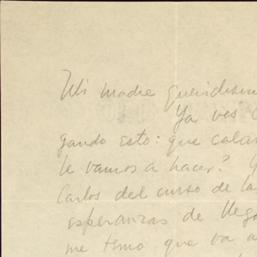 Mi madre queridísim
Ya ves
gando esto: que calam
le vamos a hacer?
Carlos del curso de la
esperanzas de llega
me temo que va a